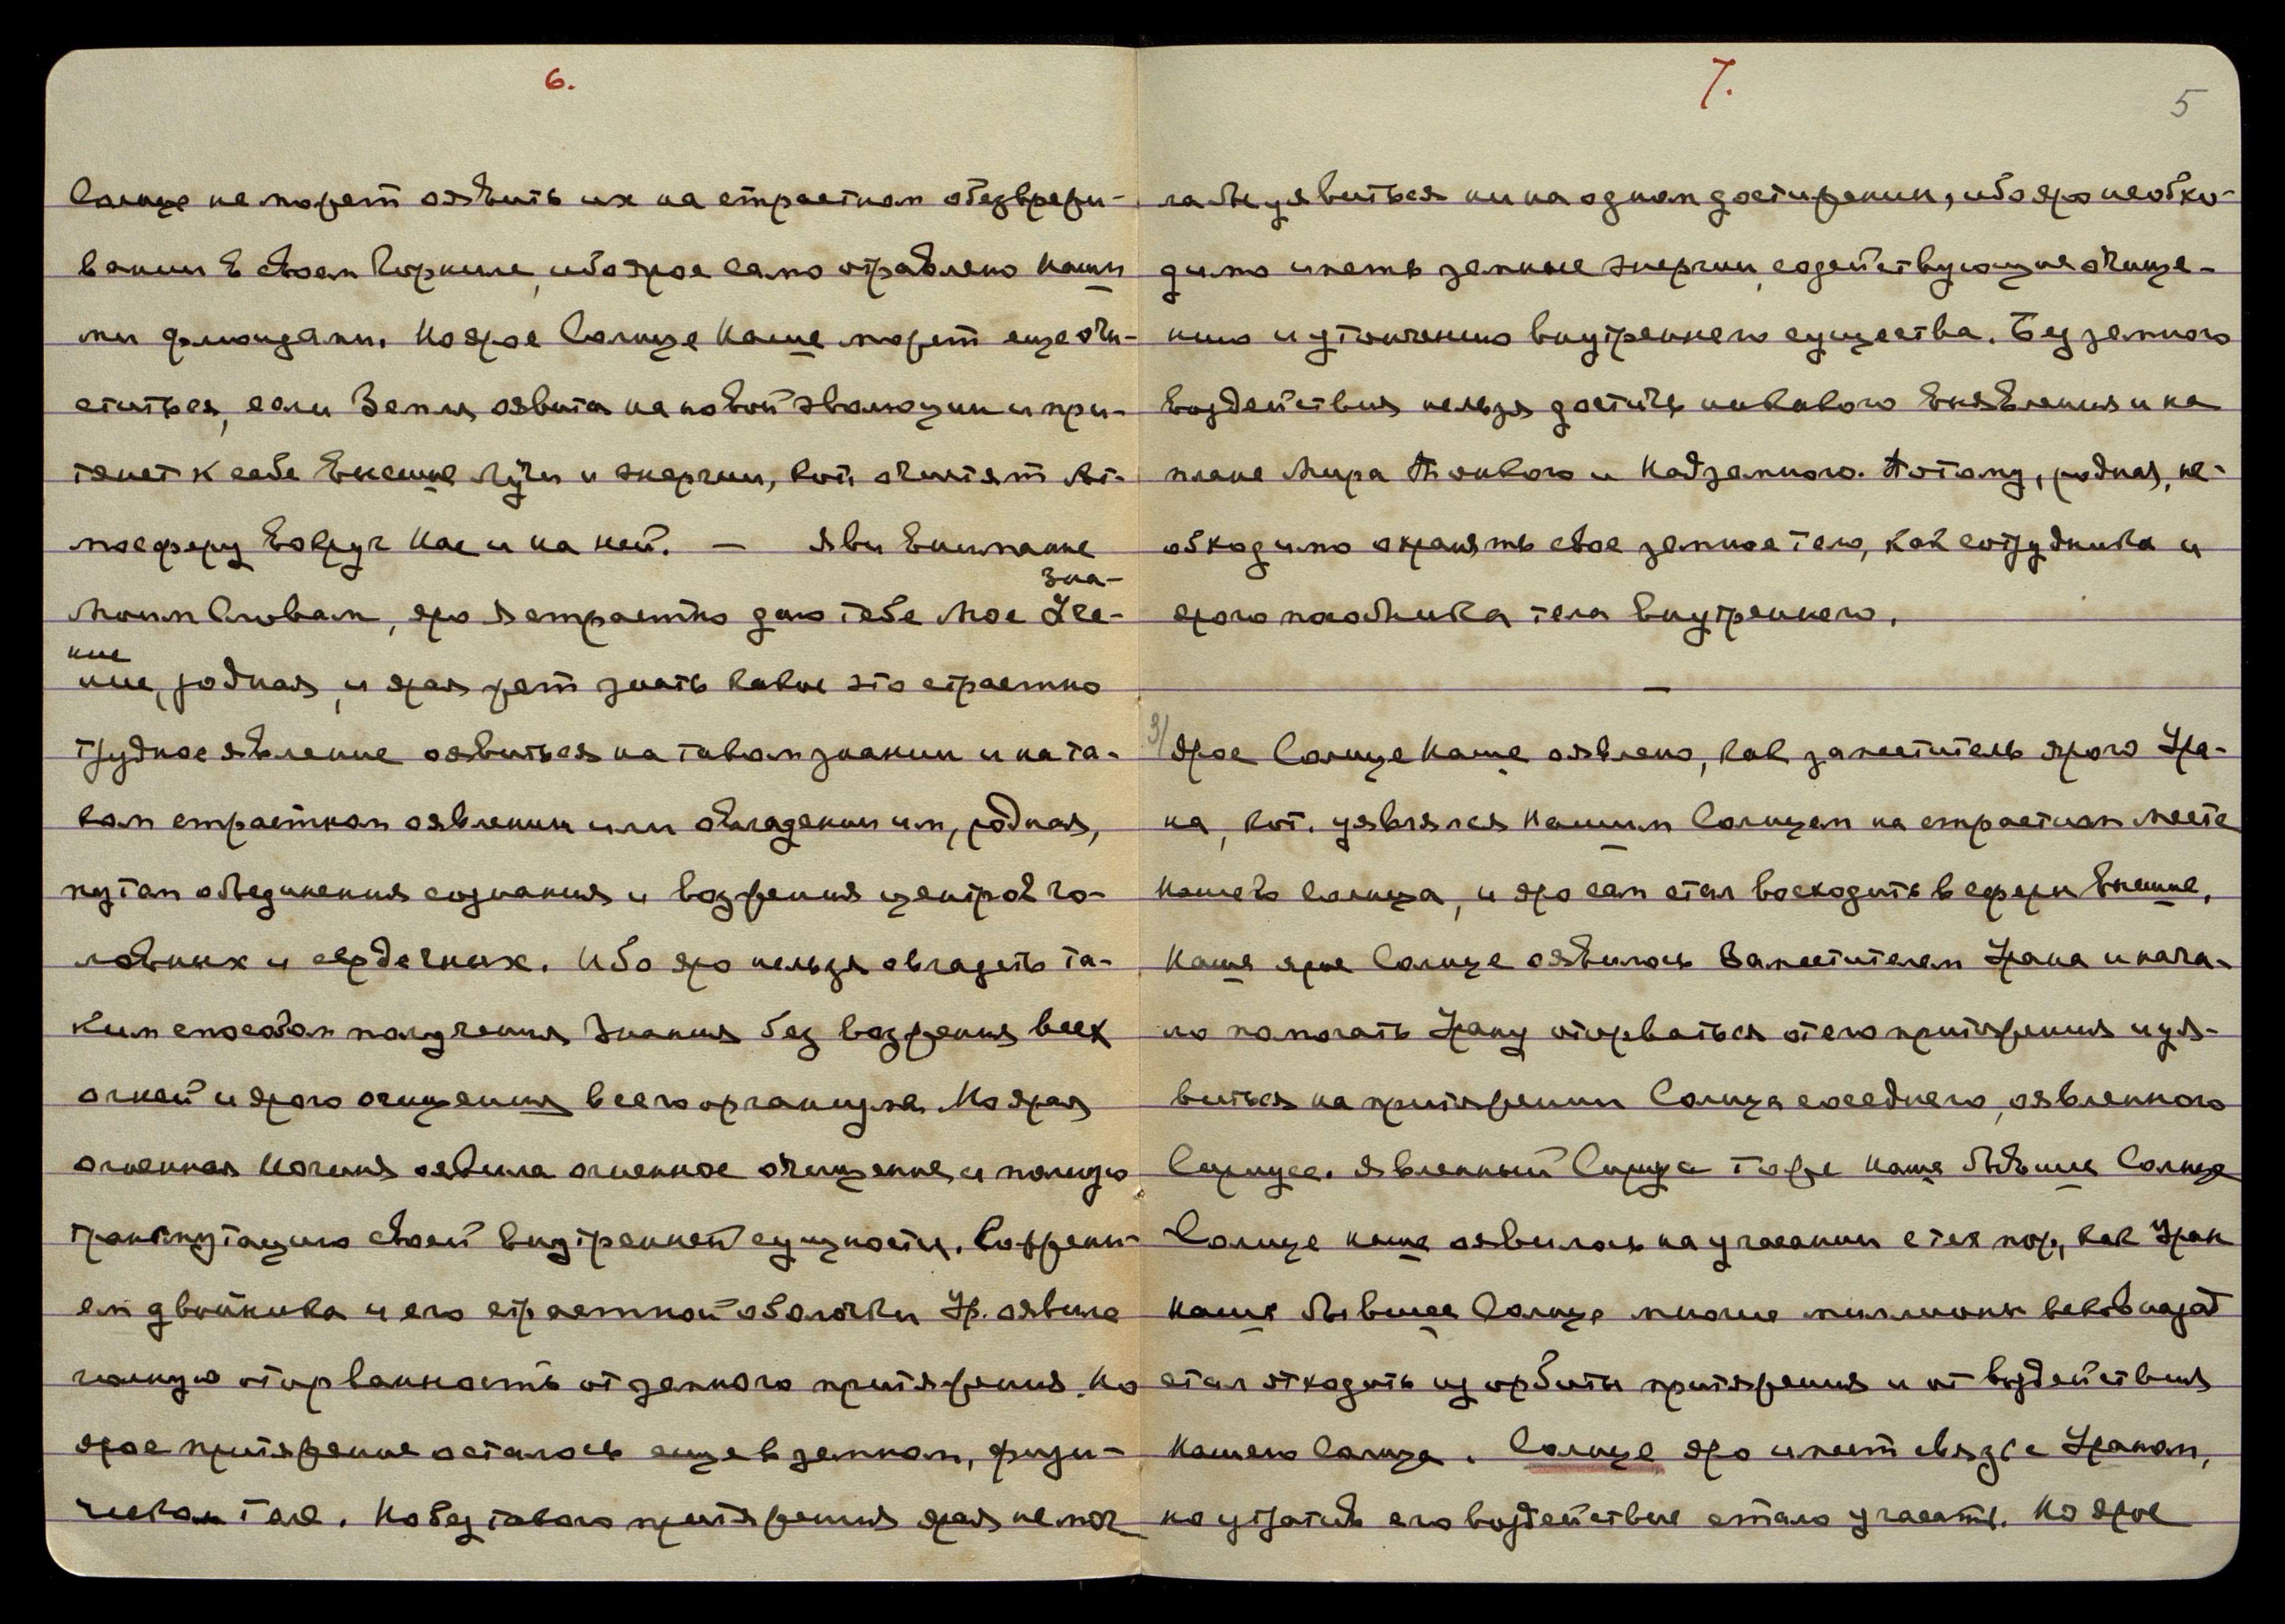 6.
Солнце не может оявить их на страстном обезврежи-
вании в своем Горниле, ибо ярое само отравлено наши
ми флюидами. Но ярое Солнце Наше может еще очи-
ститься, если Земля оявита на новой эволюции и при-
тянет к себе Внешние Лучи и энергии, кот. очистят ат-
мосферу вокруг нас и на ней. — Яви внимание
Зна-
Моим Словам, яро Я страстно даю тебе Мое Уче-
ние
ние, родная, и ярая может знать какое это страстно
трудное явление оявиться на таком знании и на та-
ком страстном оявлении или овладении им, родная,
путем объединения сознания и возжения центров го-
ловных и сердечных. Ибо яро нельзя овладеть та-
ким способом получения Знания без возжения всех
огней и ярого очищения всего организма. Но ярая
огненная Йогиня оявила огненное очищение и полную
трансмутацию своей внутренней сущности. Сожжени-
ем двойника и его страстной оболочки Ур. оявила
полную оторванность от земного притяжения. Но
ярое притяжение осталось еще в земном, физи-
ческом теле. Но без такого притяжения ярая не мог
7.
5
ла бы уявиться ни на одном достижении, ибо яро необхо-
димо иметь земные энергии, содействующие очище-
нию и утончению внутреннего существа. Без земного
воздействия нельзя достичь никакого вняявления и на
плане Мира Тонкого и Надземного. Потому, родная, не-
обходимо охранять свое земное тело, как сотрудника и
ярого пособника тела внутреннего.
—
3/ Ярое Солнце Наше оявлено, как заместитель ярого Ура-
на, кот. уявлялся Нашим Солнцем на страстном месте
Нашего Солнца, и яро сам стал восходить в сферы Внешние.
Наше ярое Солнце оявилось Заместителем Урана и нача-
ло помогать Урану оторваться от его притяжения и уя-
виться на притяжении Солнца соседнего, оявленного
Сириуса. Явленный Сириус тоже Наше бывшее Солнце
Солнце наше оявилось на угасании с тех пор, как Уран
Наше бывшее Солнце многие миллионы веков назад
стал отходить из орбиты притяжения и от воздействия
Нашего Солнца. Солнце яро имеет связь с Ураном,
но утратив его воздействие стало угасать. Но ярое